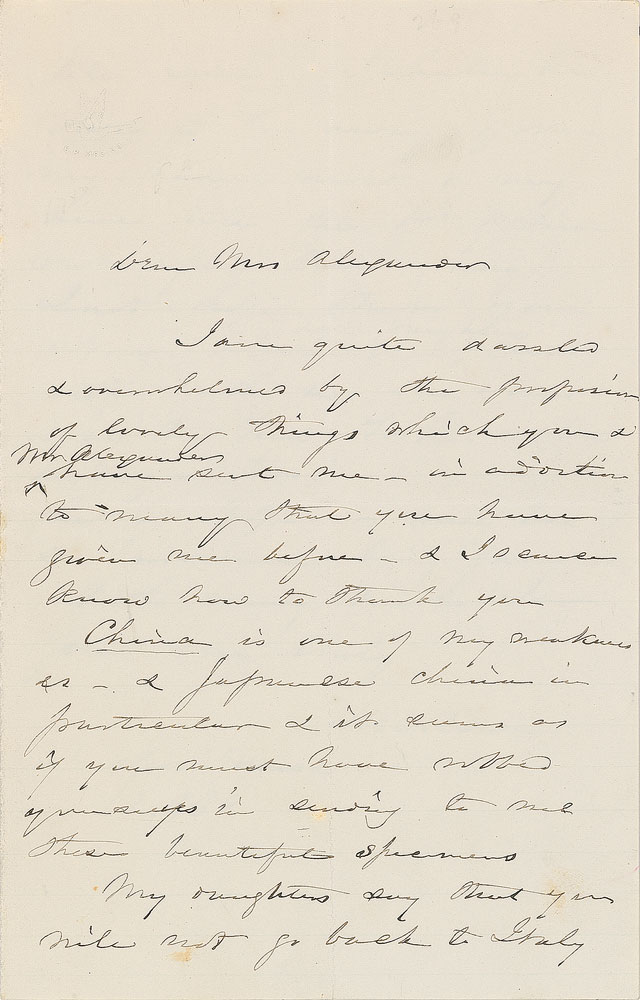 Dear Mrs Alexander
I am quite dazzled
& overwhelmed by the profusion
of lovely things which you &
Mr. Alexander
have sent me - in addition
to many that you have
given me before - & I scarce
know how to thank you
China is one of my weakness
es - & Japanese china in
particular & it seems as
if you must have robbed
yourselves in sending to me
these beautiful specimens
My daughters say that you
will not go back to Italy